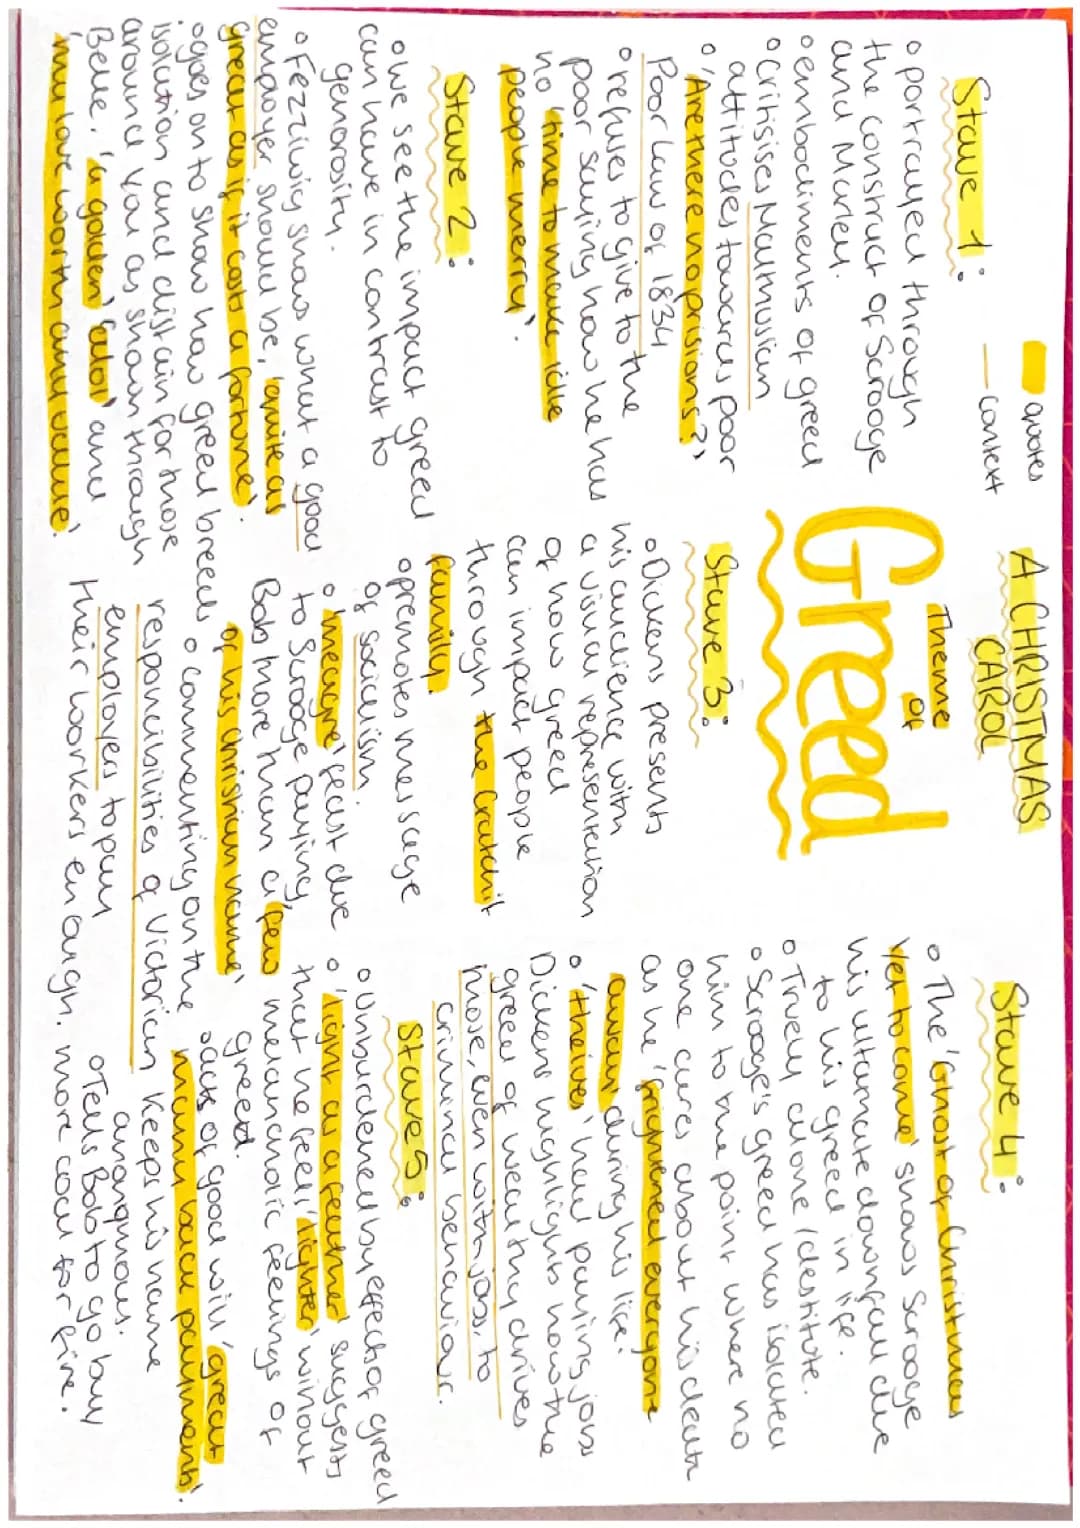 quotes
context
A CHRISTMAS
CAROL
Theme
of
Greed
Stave 1:
o portrayed through
the construct of Scrooge
and Marley.
o embodiments of greed
o critisises Malthusian
attitudes towards poor
o 'Are there no prisions?'
Poor Law of 1834
o refuses to give to the
poor saying how he has
no 'time to make idle
people merry'.
Stave 2:
o we see the impact greed
can have in contrast to
generosity.
o Fezziwig shows what a good
employer should be, 'quite as
great as if it costs a fortune'.
o goes on to show how greed breeds
isolation and distain for those
around you as shown through
Belle, 'a golden' 'idol' and
'my love worth and value'.
Stave 3:
o Dickens presents
his audience with
a visual representation
of how greed
can impact people
through the Cratchit
family.
o premotes message
of socialism.
o 'meagre' feast due
to Scrooge paying
Bob more than a 'few
of his christian name'
o commenting on the
responcibilities of Victorian
employers to pay
their workers enough.
Stave 4:
o The 'Ghost of Christmas
Yet to come' shows Scrooge
his ultimate downfall due
to his greed in life.
o Truely alone / destitute.
o Scrooge's greed has isolated
him to the point where no
one cares about his death
as he 'frightened everyone
away' during his life.
o 'theives' had paying jobs
Dickens highlights how the
greed of wealthy drives
those, even with jobs, to
criminal behaviour.
Stave 5:
o Unburdened by effects of greed
o 'light as a feather' suggests
that he feels 'lighter' without
melancholic feelings of
greed.
o acts of good will, 'great
many back payments'.
Keeps his name
o Tells Bob to go buy
more coal for fire.